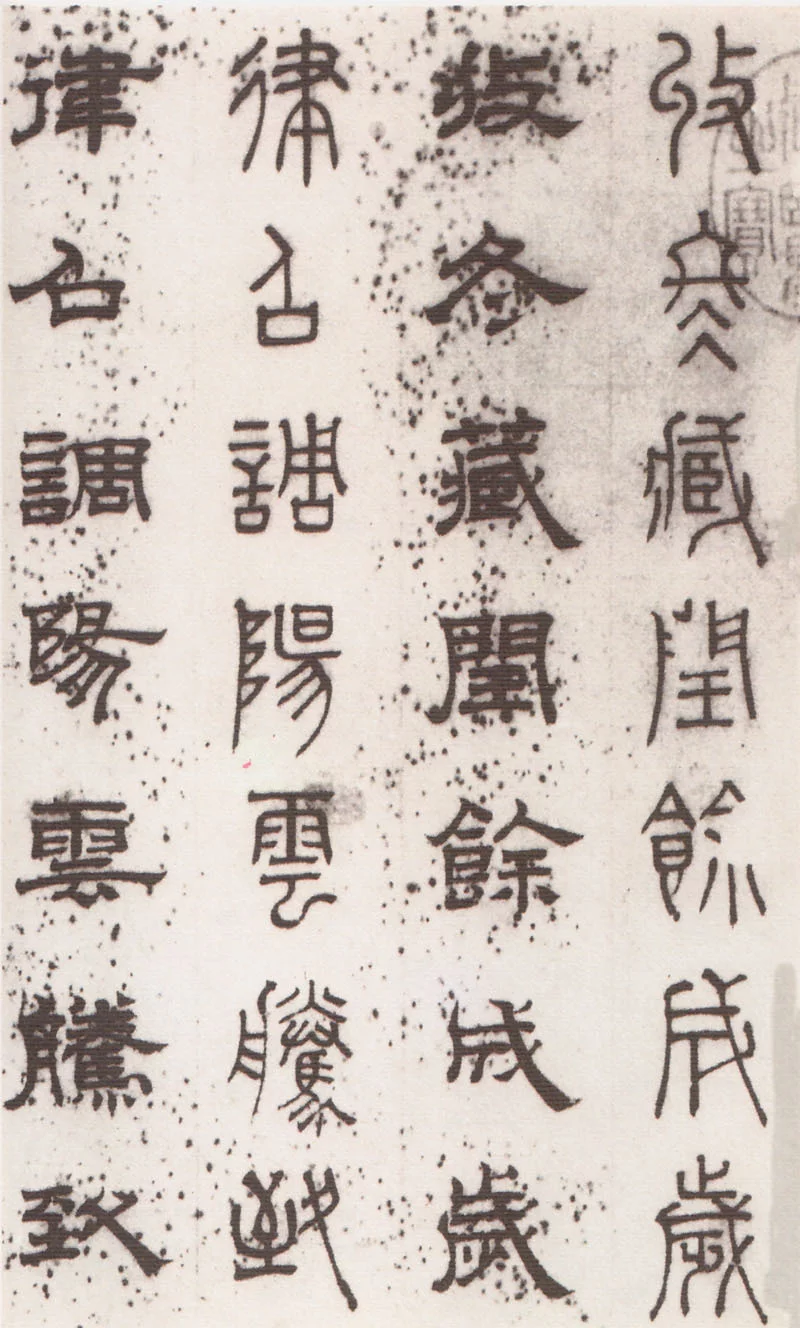 收冬藏閏餘成歲
收冬藏閏餘成歲
律召調陽雲騰致
律召調陽雲騰致